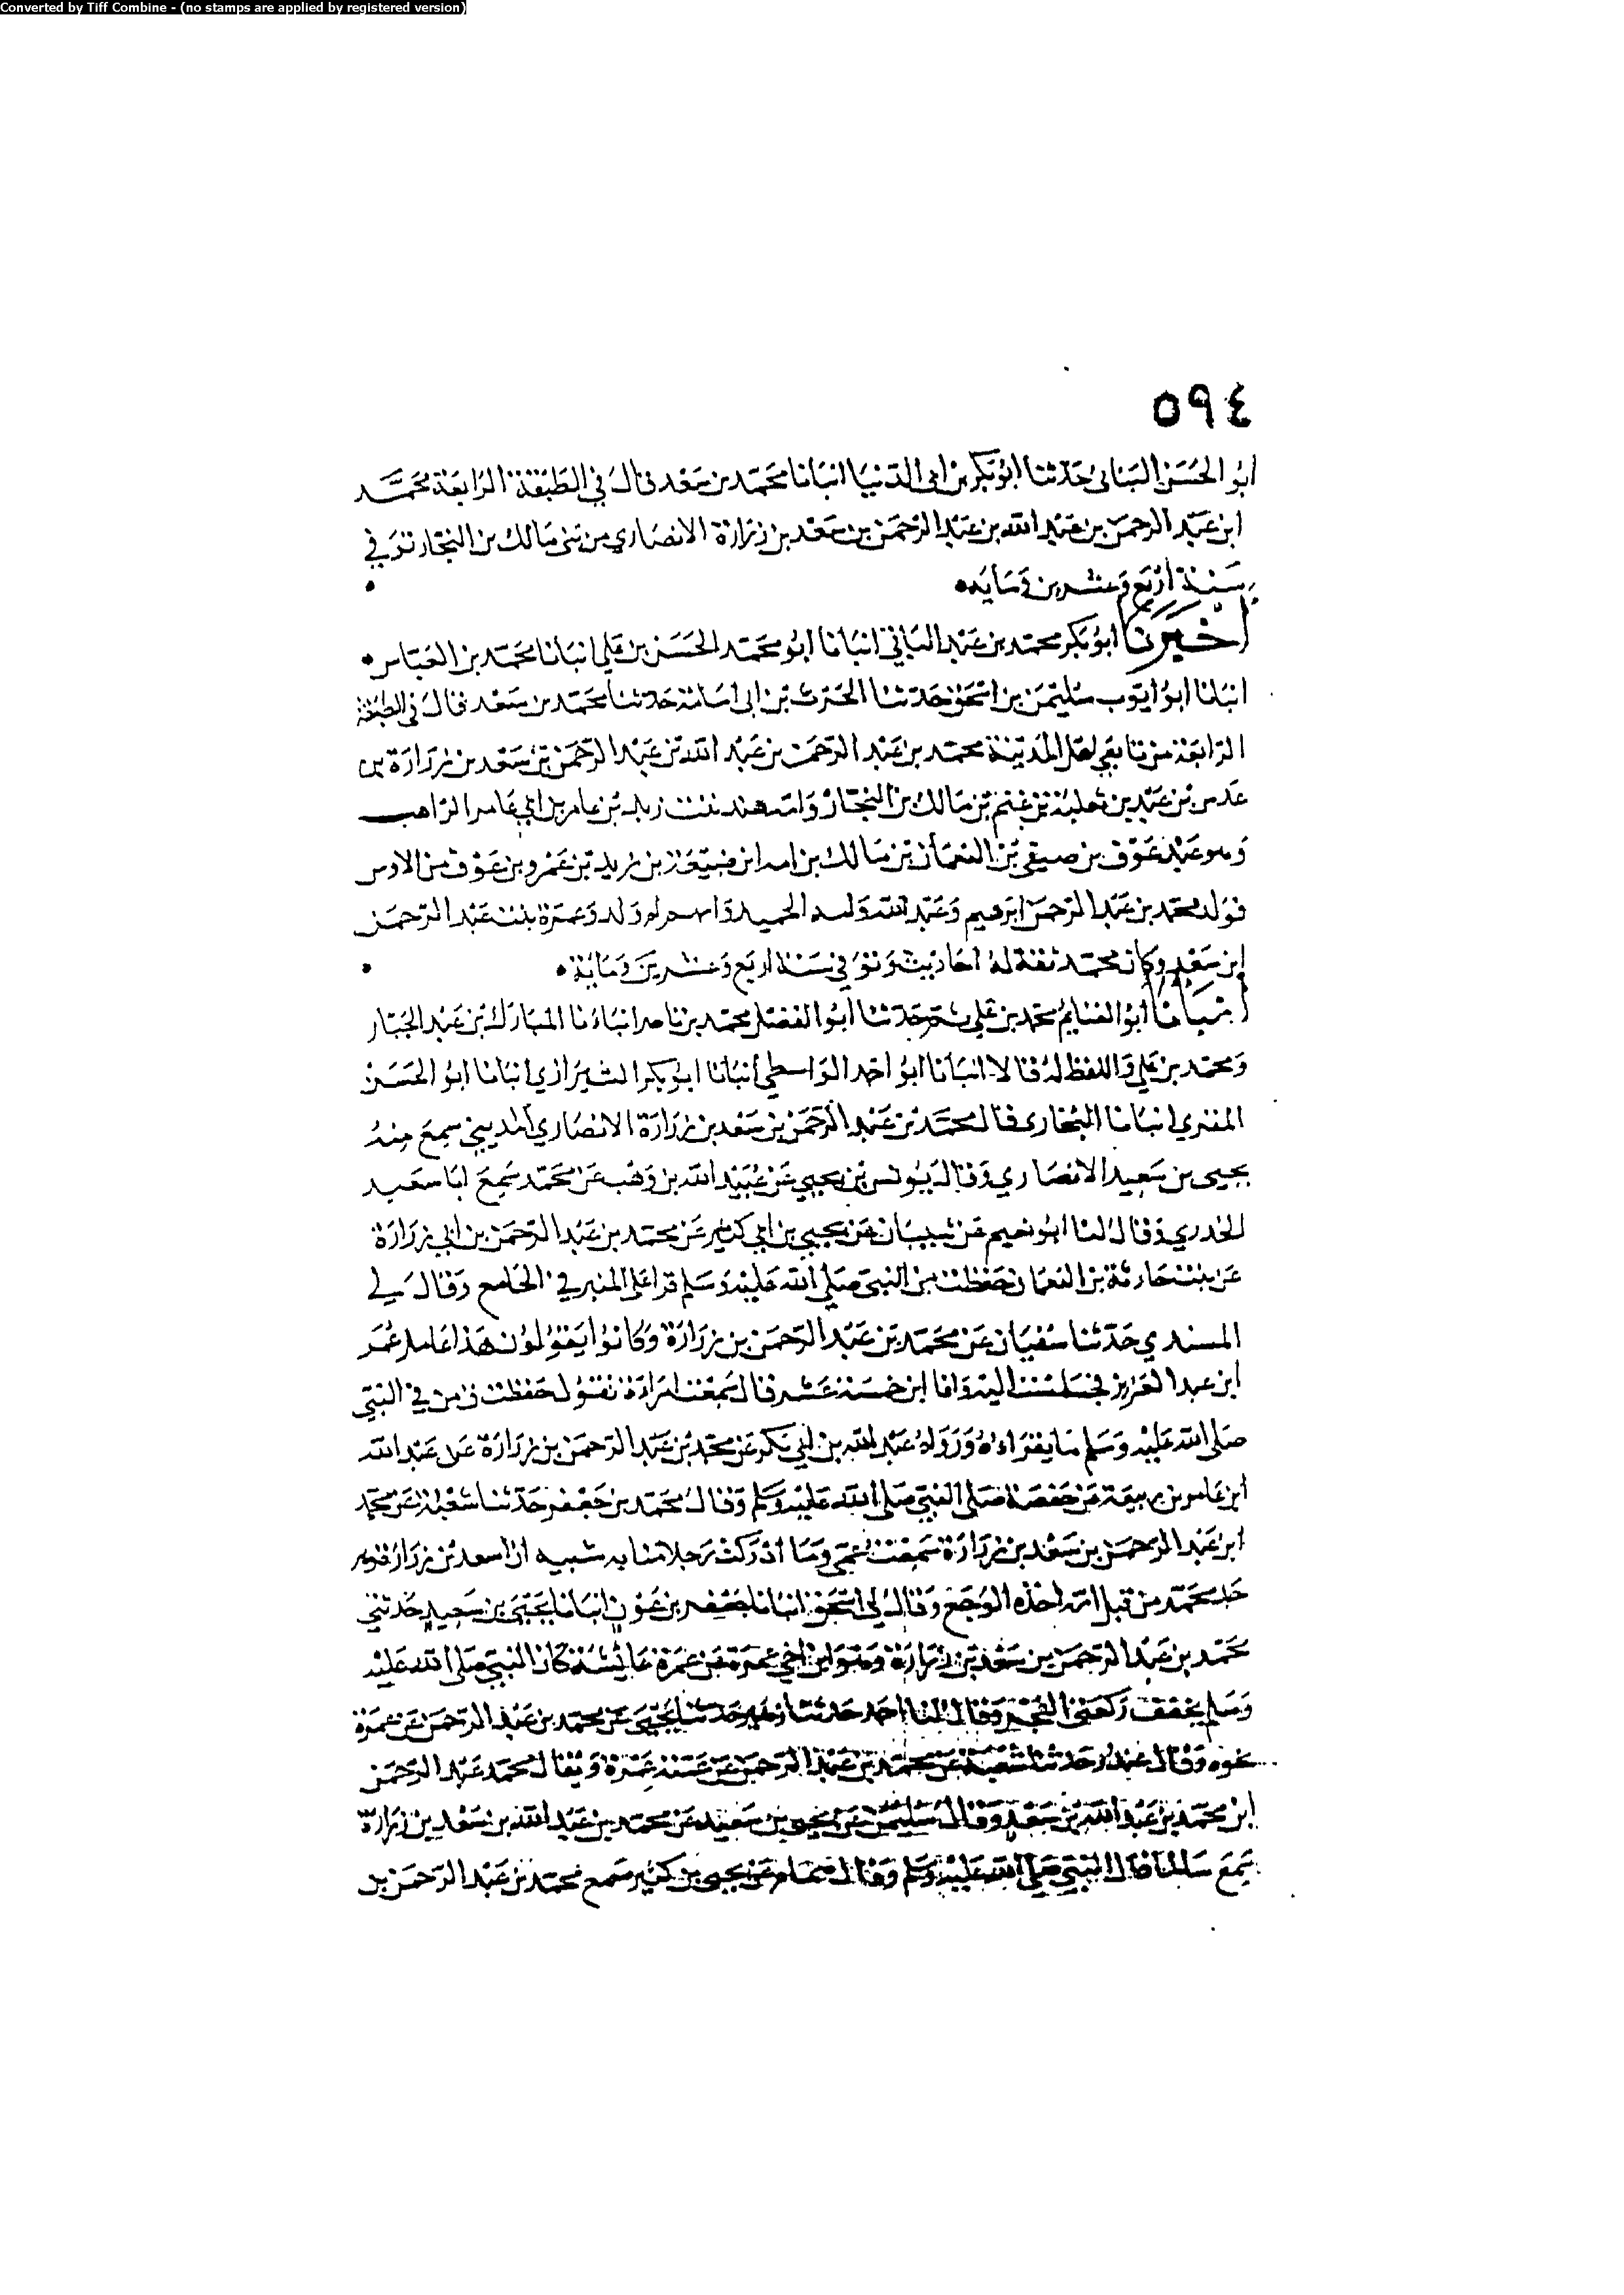 Converted by Tiff Combine - (no stamps are applied by registered version)
٥٩٤
ابو الحسن اللبناني حدثنا ابو بكر بن ابي الدنيا انبانا محمد بن سعد قال في الطبقة الرابعة محمد
ابن عبد الرحمن بن عبد الله بن عبد الرحمن بن سعد بن زرارة الانصاري من بني مالك بن النجار توفي
سنة اربع وعشرين ومايه
اخبرنا ابو بكر محمد بن عبد الباقي انبانا ابو محمد الحسن بن علي انبانا محمد بن العباس
انبانا ابو ايوب سليمن بن اسحق حدثنا الحرث بن ابي اسامة حدثنا محمد بن سعد قال في الطبقة
الرابعة من تابعي اهل المدينة محمد بن عبد الرحمن بن عبد الله بن عبد الرحمن بن سعد بن زرارة بن
عدس بن عبيد بن ثعلبة بن غنم بن مالك بن النجار وامه هند بنت زيد بن عامر بن ابي عامر الراهب
وهو عبد عوف بن صيفي بن النعمان بن مالك بن امه ابن ضبيعة بن زيد بن عمرو بن عوف من الاوس
فولد محمد بن عبد الرحمن ابرهيم وعبد الله الحميد ولد وعمرة بنت عبد الرحمن
ابن سعد وكان محمد ثقة له احاديث وتوفي في سنة اربع وعشرين وماية
انبانا ابو الغنايم محمد بن علي ثم حدثنا ابو الفضل محمد بن ناصر انباءنا المبارك بن عبد الجبار
ومحمد بن علي واللفظ له قالا انبانا ابو احمد الواسطي انبانا ابو بكر الشيرازي انبانا ابو الحسن
المقري انبانا البخاري قال محمد بن عبد الرحمن بن سعد بن زرارة الانصاري المديني سمع منه
يحيى بن سعيد الانصاري وقال يونس بن يحيى عن عبيد الله بن وهب عن محمد سمع ابا سعيد
الخدري وقال لنا ابو نعيم عن شيبان عن يحيى بن ابي كثير عن محمد بن عبد الرحمن بن ابي زرارة
عن بنت حارثة بن النعمان حفظت من النبي صلى الله عليه وسلم قرا على المنبر في الجامع وقال لي
المسندي حدثنا سفيان عن محمد بن عبد الرحمن بن زرارة وكانوا يقولون هذا عامل عمر
ابن عبد العزيز فجلست اليه وانا ابن خمسة عشر قال سمعت امراة تقول حفظت ق من في النبي
صلى الله عليه وسلم مما يقراء ورواه عبد الله بن ابي بكر عن محمد بن عبد الرحمن بن زرارة عن عبد الله
ابن عامر بن ربيعة عن حفصة صلى النبي صلى الله عليه وسلم وقال محمد بن جعفر حدثنا شعبة عن محمد
ابن عبد الرحمن بن سعد بن زرارة سمعت عمي وما ادركت رجلا منا به شبيه ان اسعد بن زرارة وهو
جد محمد من قبل امه اخذه الوجع وقال لي اسحق انبانا جعفر بن عون انبانا يحيى بن سعيد حدثني
محمد بن عبد الرحمن بن سعد بن زرارة وهو ابن اخي عمرة عن عمرة عايشة كان النبي صلى الله عليه
وسلم يخفف ركعتي الفجر وقال لنا احمد حدثنا زهير حدثنا يحيى عن محمد بن عبد الرحمن عن عمرة
نحوه وقال غندر حدثنا شعبة عن محمد بن عبد الرحمن عن عمته عمرة ويقال محمد عبد الرحمن
ابن محمد بن عبد الله بن سعد وقال سليمن عن يحيى بن سعيد عن محمد بن عبد الله بن سعد بن زرارة
سمع سالما قال النبي صلى الله عليه وسلم وقال همام عن يحيى بن كثير سمع محمد بن عبد الرحمن بن